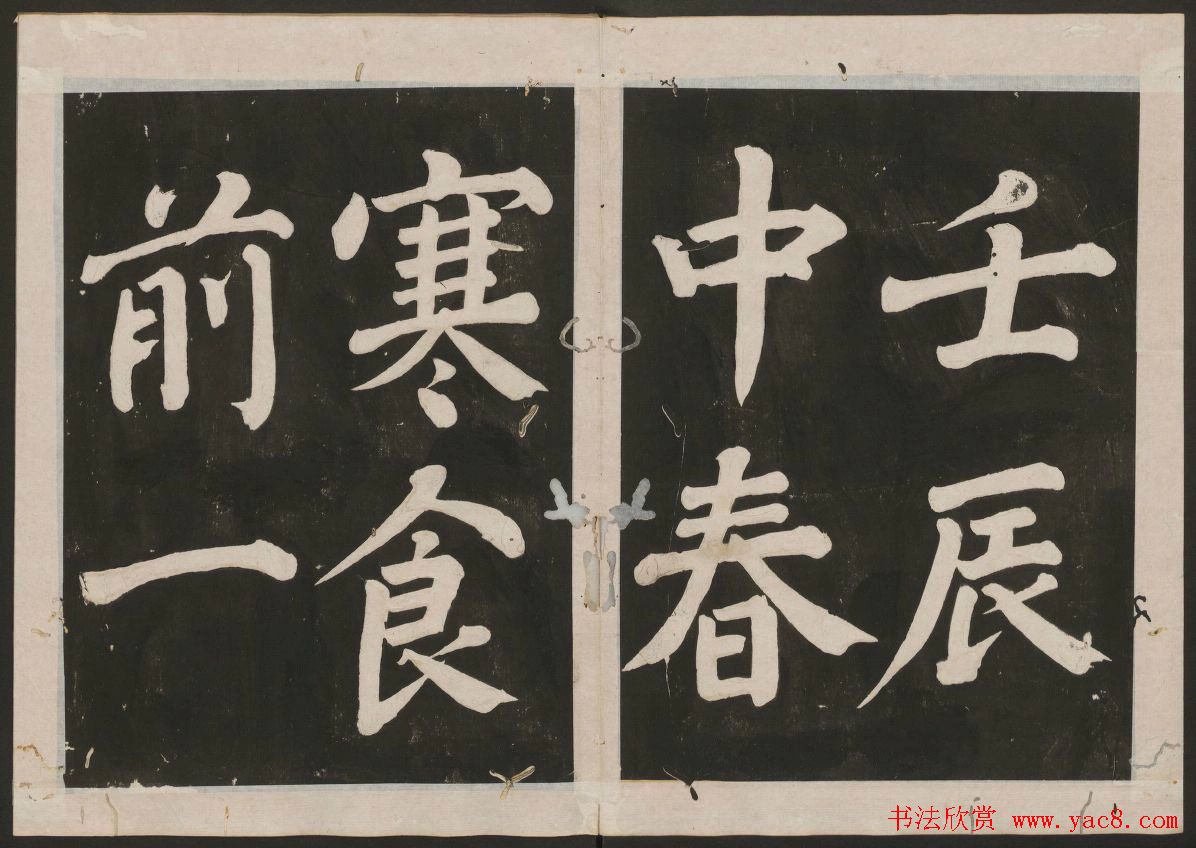 壬辰
中春
寒食
前一
书法欣赏 www.yac8.com